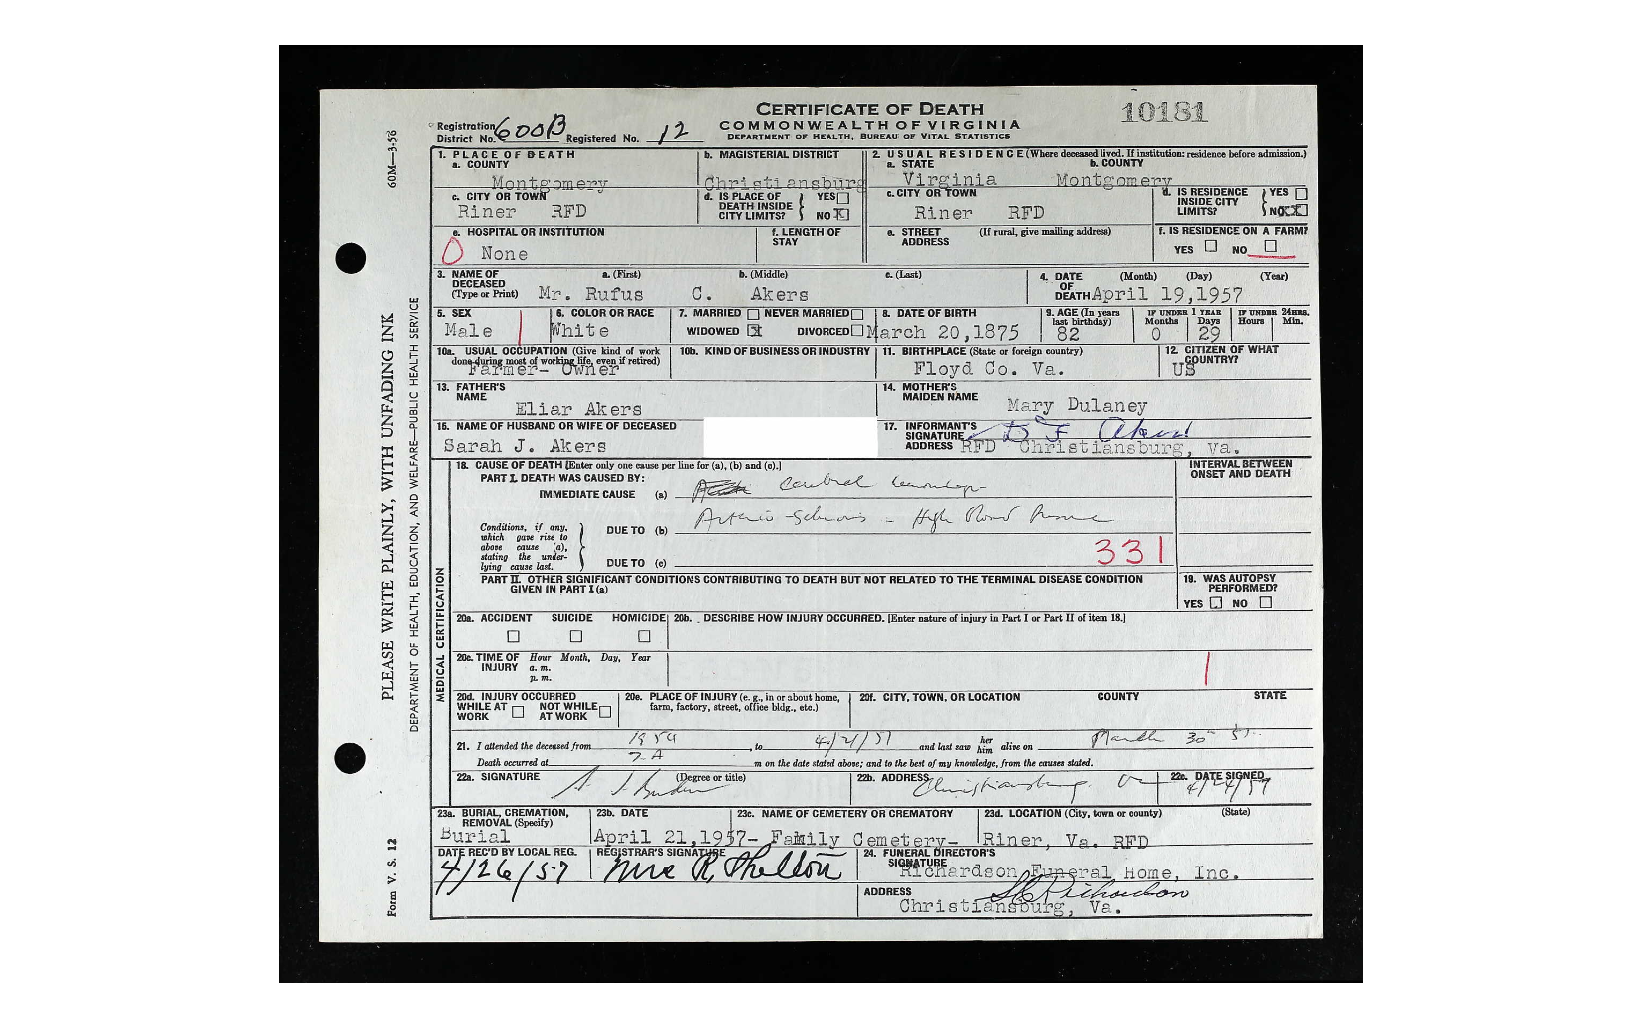 CERTIFICATE OF DEATH
10181
COMMONWEALTH OF VIRGINIA
DEPARTMENT OF HEALTH, BUREAU OF VITAL STATISTICS
Registration District No. 600B Registered No. 12
60M—3-56
PLEASE WRITE PLAINLY, WITH UNFADING INK
DEPARTMENT OF HEALTH, EDUCATION, AND WELFARE—PUBLIC HEALTH SERVICE
Form V. S. 12
1. PLACE OF DEATH
a. COUNTY
Montgomery
b. MAGISTERIAL DISTRICT
Christiansburg
2. USUAL RESIDENCE (Where deceased lived. If institution: residence before admission.)
a. STATE
Virginia
b. COUNTY
Montgomery
c. CITY OR TOWN
Riner RFD
d. IS PLACE OF DEATH INSIDE CITY LIMITS? YES NO X
c. CITY OR TOWN
Riner RFD
d. IS RESIDENCE INSIDE CITY LIMITS? YES NO XX
e. HOSPITAL OR INSTITUTION
0 None
f. LENGTH OF STAY
e. STREET ADDRESS (If rural, give mailing address)
f. IS RESIDENCE ON A FARM?
YES NO
3. NAME OF DECEASED (Type or Print)
a. (First) b. (Middle) c. (Last)
Mr. Rufus C. Akers
4. DATE OF DEATH (Month) (Day) (Year)
April 19,1957
5. SEX
Male
6. COLOR OR RACE
White
7. MARRIED NEVER MARRIED
WIDOWED X DIVORCED
8. DATE OF BIRTH
March 20,1875
9. AGE (In years last birthday)
82
IF UNDER 1 YEAR
Months Days
0 29
IF UNDER 24HRS.
Hours Min.
10a. USUAL OCCUPATION (Give kind of work done during most of working life, even if retired)
Farmer- Owner
10b. KIND OF BUSINESS OR INDUSTRY
11. BIRTHPLACE (State or foreign country)
Floyd Co. Va.
12. CITIZEN OF WHAT COUNTRY?
US
13. FATHER'S NAME
Eliar Akers
14. MOTHER'S MAIDEN NAME
Mary Dulaney
16. NAME OF HUSBAND OR WIFE OF DECEASED
Sarah J. Akers
17. INFORMANT'S SIGNATURE D F Akers
ADDRESS RFD Christiansburg, Va.
MEDICAL CERTIFICATION
18. CAUSE OF DEATH [Enter only one cause per line for (a), (b) and (c).]
INTERVAL BETWEEN ONSET AND DEATH
PART I. DEATH WAS CAUSED BY:
IMMEDIATE CAUSE (a)
Conditions, if any, which gave rise to above cause (a), stating the underlying cause last.
DUE TO (b) High Blood
DUE TO (c)
331
PART II. OTHER SIGNIFICANT CONDITIONS CONTRIBUTING TO DEATH BUT NOT RELATED TO THE TERMINAL DISEASE CONDITION GIVEN IN PART I (a)
19. WAS AUTOPSY PERFORMED?
YES NO
20a. ACCIDENT SUICIDE HOMICIDE
20b. DESCRIBE HOW INJURY OCCURRED. [Enter nature of injury in Part I or Part II of item 18.]
20c. TIME OF INJURY Hour Month, Day, Year
a. m.
p. m.
20d. INJURY OCCURRED
WHILE AT WORK NOT WHILE AT WORK
20e. PLACE OF INJURY (e. g., in or about home, farm, factory, street, office bldg., etc.)
20f. CITY, TOWN, OR LOCATION COUNTY STATE
21. I attended the deceased from , to and last saw her him alive on March 30
Death occurred at m on the date stated above; and to the best of my knowledge, from the causes stated.
22a. SIGNATURE (Degree or title)
22b. ADDRESS Christiansburg
22c. DATE SIGNED
4/24/57
23a. BURIAL, CREMATION, REMOVAL (Specify)
Burial
23b. DATE
April 21,1957-
23c. NAME OF CEMETERY OR CREMATORY
Family Cemetery-
23d. LOCATION (City, town or county) (State)
Riner, Va. RFD
DATE REC'D BY LOCAL REG.
4/26/57
REGISTRAR'S SIGNATURE
Mrs R. Shelton
24. FUNERAL DIRECTOR'S SIGNATURE
Richardson Funeral Home, Inc.
ADDRESS
Christiansburg, Va.